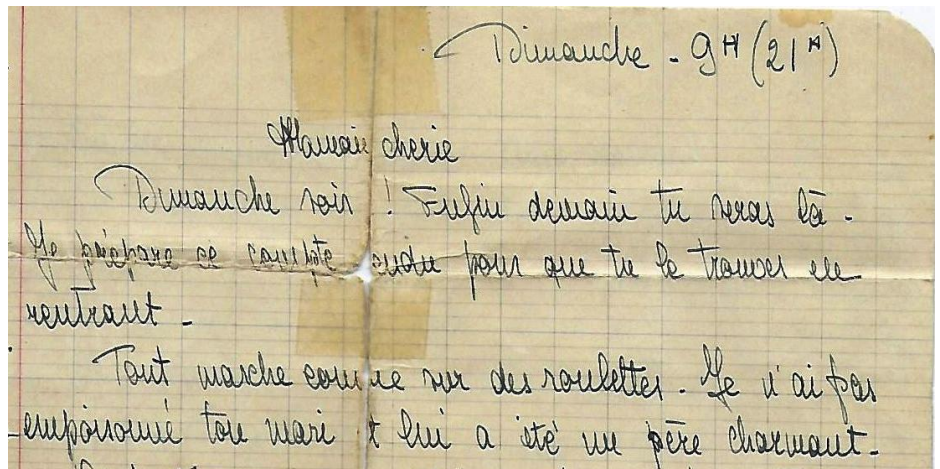 Dimanche - 9H (21H)
Maman cherie
Dimanche soir ! Enfin demain tu seras là -
Je prépare ce compte rendu pour que tu le trouves en
rentrant -
Tout marche comme sur des roulettes - Je n'ai pas
empoisonné ton mari et lui a été un père charmant -